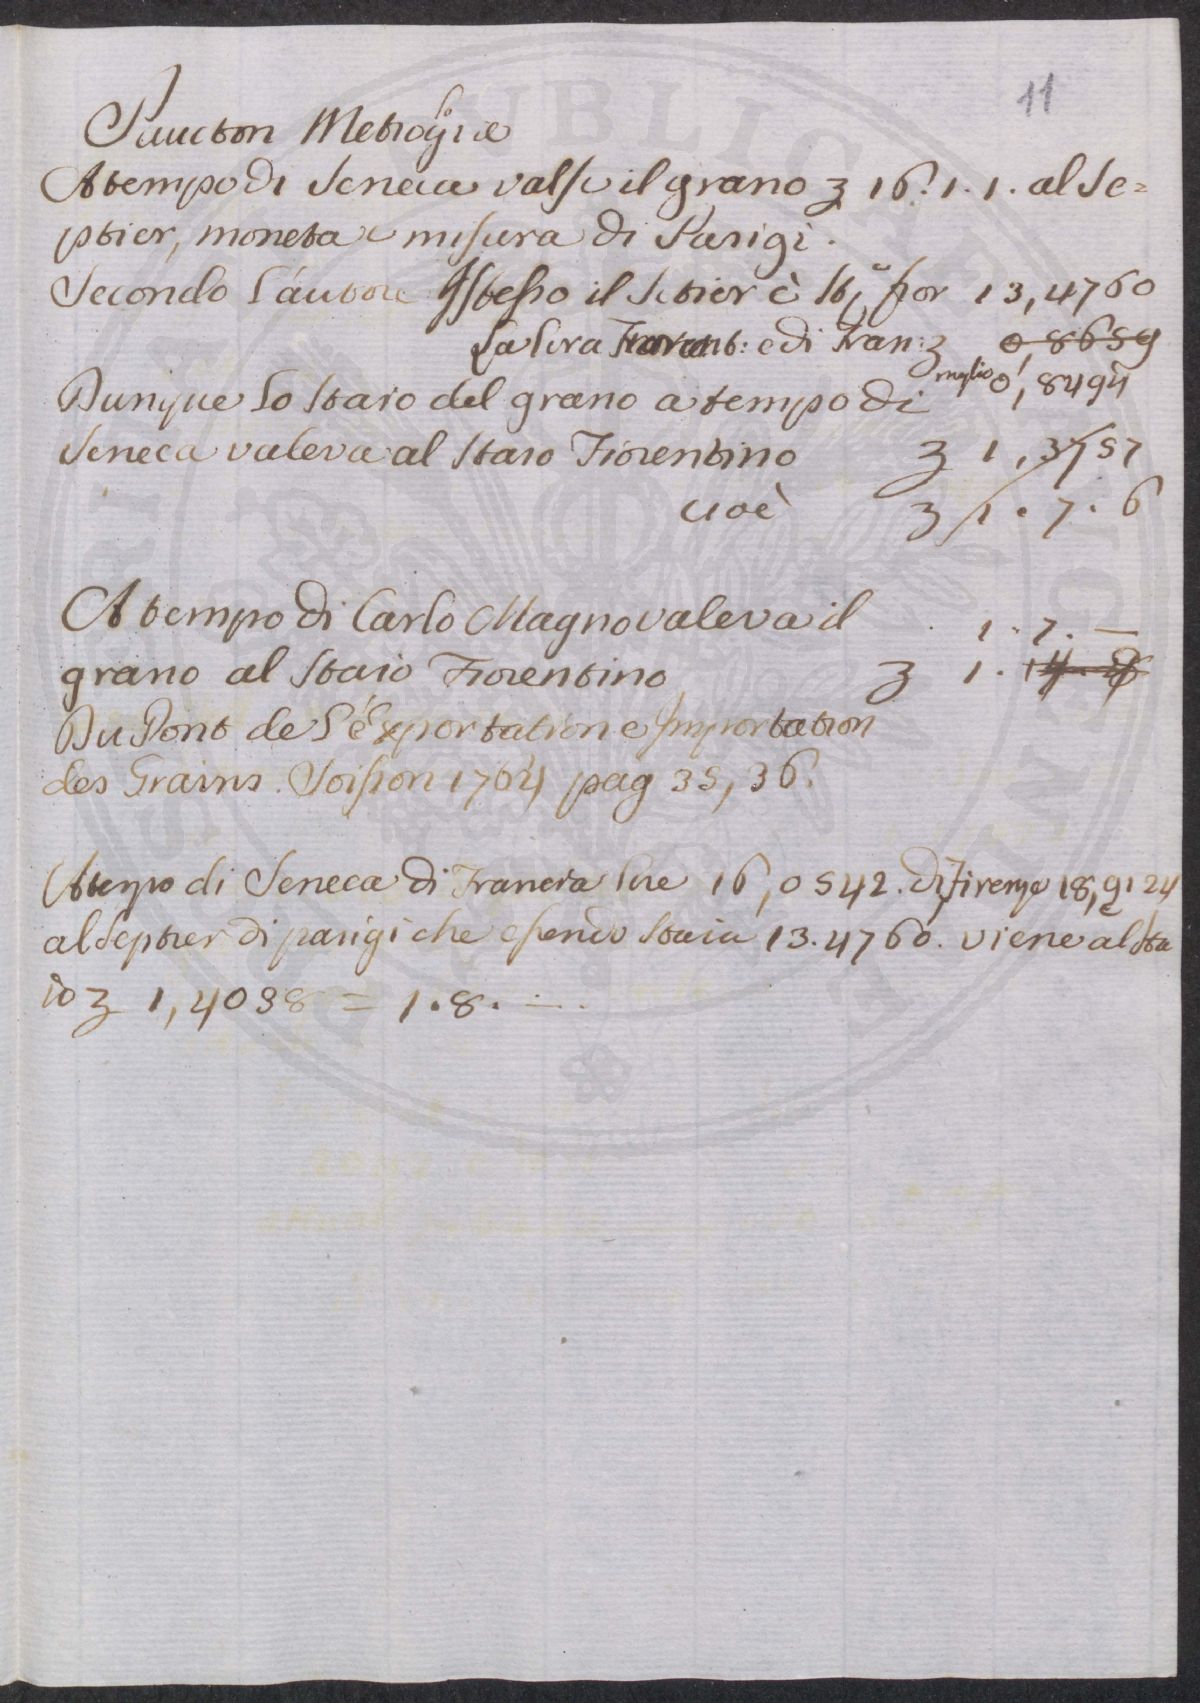 11
Paucton Metrogia
A tempo di Seneca valse il grano ʒ 16.1.1. al Se=
ptier, moneta e misura di Parigi.
Secondo L'autore Istesso il Setier è Sta fior 13,4760
La Lira Fiorent: e di Fran: ʒ 0,8659
meglio 0,8494
Dunque Lo Staio del grano a tempo di
Seneca valeva al Staio Fiorentino ʒ 1,3757
cioè ʒ 1.7.6
A tempo di Carlo Magno valeva il 1.7.—
grano al Staio Fiorentino ʒ 1.
Du Pont de L'éxportation e Importation
des Grains. Soisson 1764 pag 35, 36.
A tempo di Seneca di Francia Lire 16,0542. di Firenze 18,9124
al Septier di parigi che essendo Staia 13.4760. viene al Sta
io ʒ 1,4038 = 1.8.—.
PUBLICAE